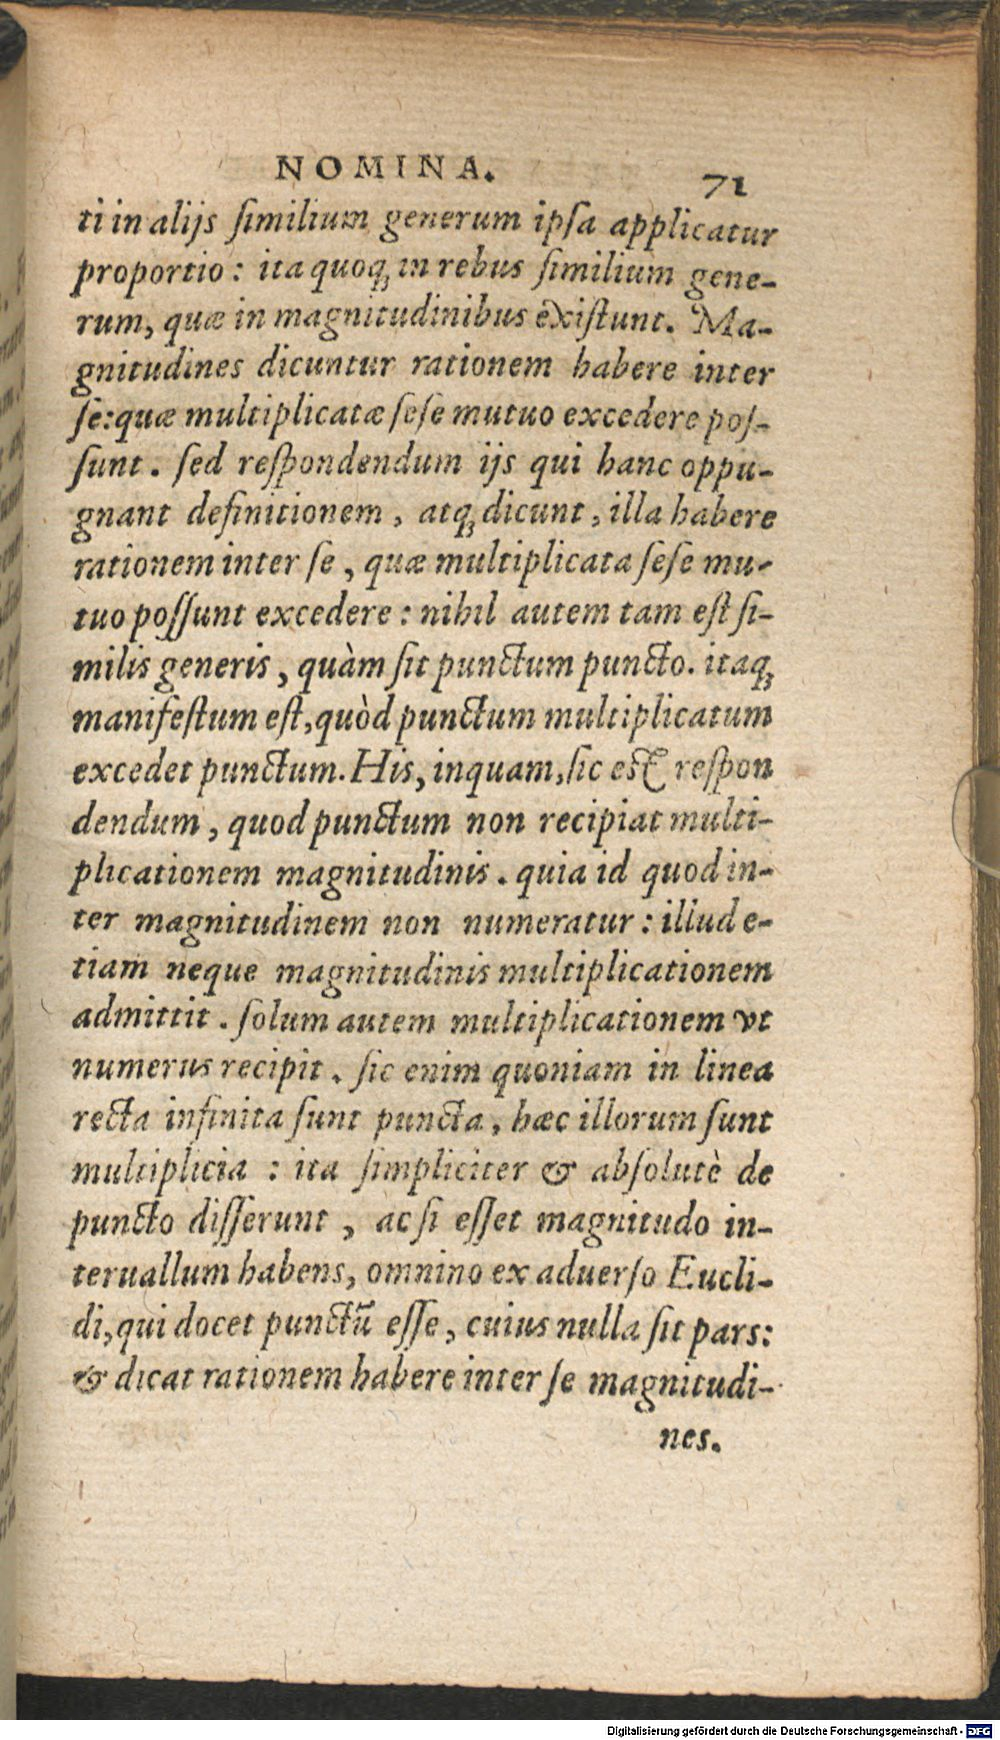 NOMINA. 71
ti in alijs ſimilium generum ipſa applicatur
proportio: ita quoq; in rebus ſimilium gene-
rum, quæ in magnitudinibus exiſtunt. Ma-
gnitudines dicuntur rationem habere inter
ſe: quæ multiplicatæ ſeſe mutuo excedere poſ-
ſunt. ſed reſpondendum ijs qui hanc oppu-
gnant definitionem, atq; dicunt, illa habere
rationem inter ſe, quæ multiplicata ſeſe mu-
tuo poſſunt excedere: nihil autem tam eſt ſi-
milis generis, quàm ſit punctum puncto. itaq;
manifeſtum eſt, quòd punctum multiplicatum
excedet punctum. His, inquam, ſic est reſpon
dendum, quod punctum non recipiat multi-
plicationem magnitudinis. quia id quod in-
ter magnitudinem non numeratur: illud e-
tiam neque magnitudinis multiplicationem
admittit. ſolum autem multiplicationem vt
numerus recipit. ſic enim quoniam in linea
recta infinita ſunt puncta, hæc illorum ſunt
multiplicia: ita ſimpliciter & abſolutè de
puncto diſſerunt, ac ſi eſſet magnitudo in-
teruallum habens, omnino ex aduerſo Eucli-
di, qui docet punctũ eſſe, cuius nulla ſit pars:
& dicat rationem habere inter ſe magnitudi-
nes.
Digitalisierung gefördert durch die Deutsche Forschungsgemeinschaft - DFG